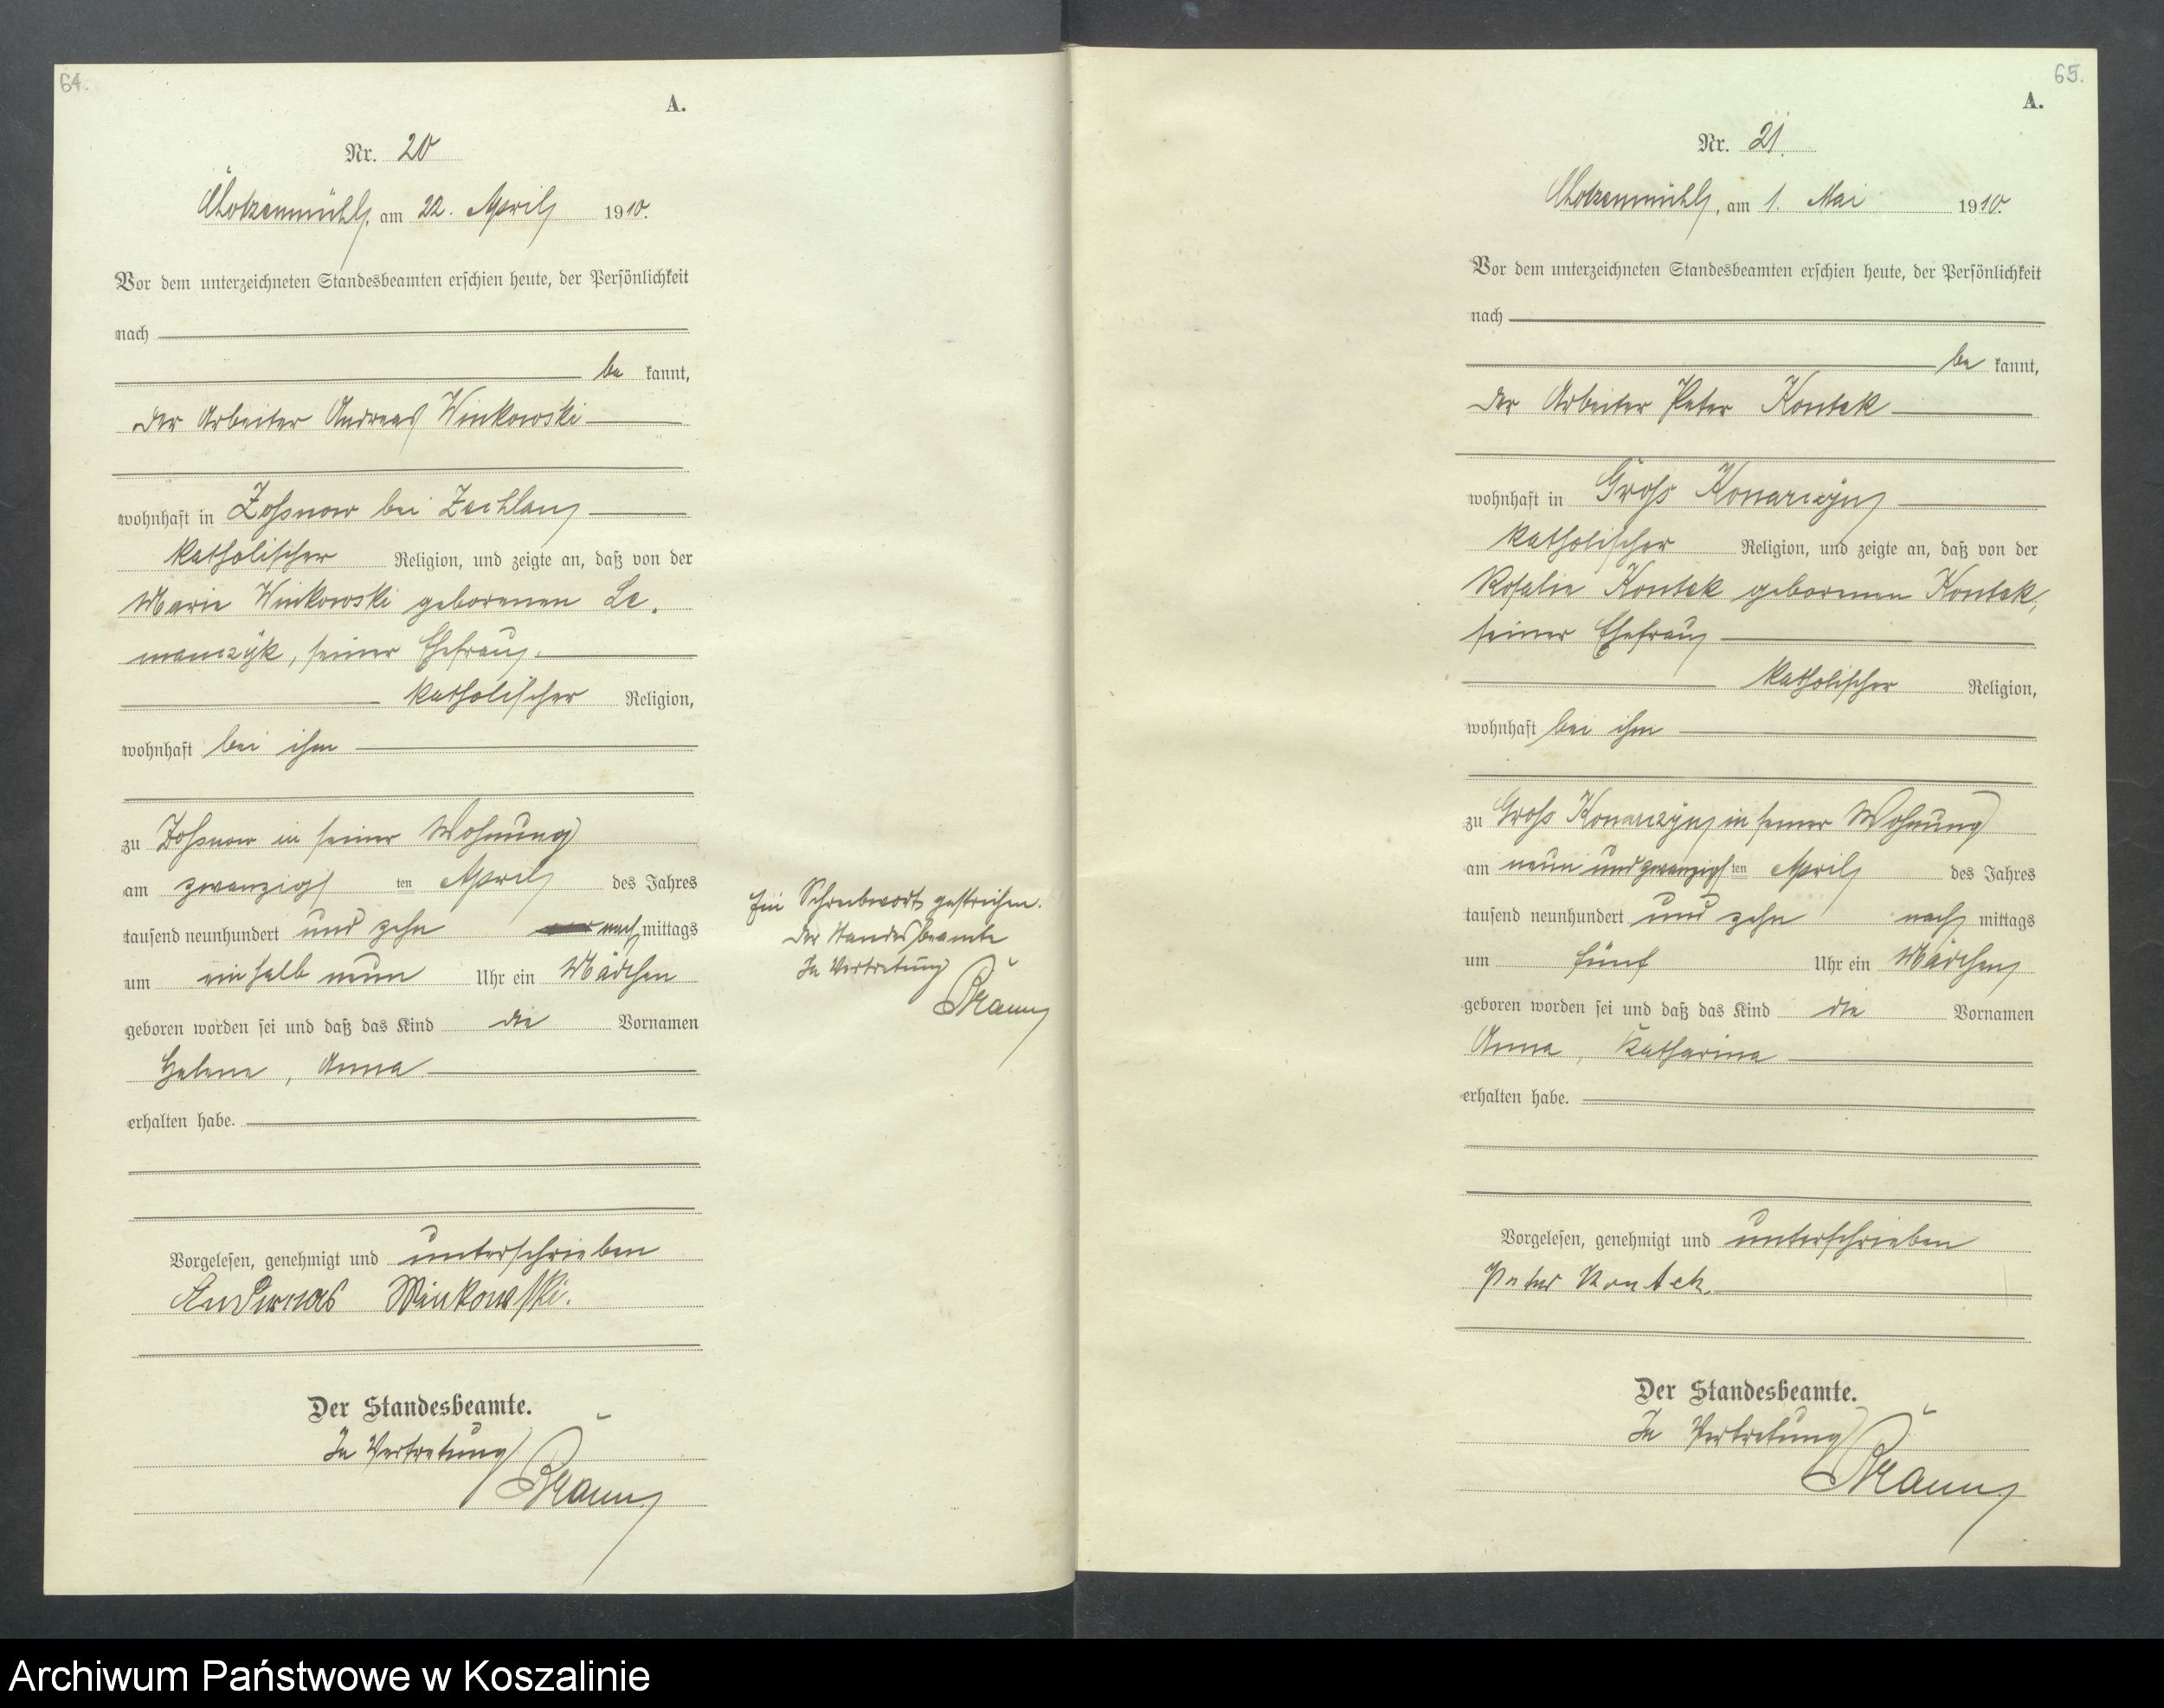 64.
A.
Nr. 20
Chotzenmühl, am 22. April 1910.
Vor dem unterzeichneten Standesbeamten erschien heute, der Persönlichkeit
nach
be kannt,
der Arbeiter Andreas Winkowski
wohnhaft in Zossnow bei Zechlau
katholischer Religion, und zeigte an, daß von der
Marie Winkowski geborenen Le-
manczyk, seiner Ehefrau,
katholischer Religion,
wohnhaft bei ihm
zu Zossnow in seiner Wohnung
am zwanzigsten April des Jahres
tausend neunhundert und zehn nachmittags
um einhalb neun Uhr ein Mädchen
geboren worden sei und daß das Kind die Vornamen
Helene, Anna
erhalten habe.
Vorgelesen, genehmigt und unterschrieben
Andreas Winkowski.
Der Standesbeamte.
In Vertretung
Braun
Ein Schreibwort gestrichen.
Der Standesbeamte
In Vertretung
Braun
65.
A.
Nr. 21.
Chotzenmühl, am 1. Mai 1910.
Vor dem unterzeichneten Standesbeamten erschien heute, der Persönlichkeit
nach
be kannt,
der Arbeiter Peter Kontek
wohnhaft in Gross Konarczyn
katholischer Religion, und zeigte an, daß von der
Rosalie Kontek geborenen Kontek,
seiner Ehefrau
katholischer Religion,
wohnhaft bei ihm
zu Gross Konarczyn in seiner Wohnung
am neun und zwanzigsten April des Jahres
tausend neunhundert und zehn nachmittags
um fünf Uhr ein Mädchen
geboren worden sei und daß das Kind die Vornamen
Anna, Katharina
erhalten habe.
Vorgelesen, genehmigt und unterschrieben
Peter Kontek.
Der Standesbeamte.
In Vertretung
Braun
Archiwum Państwowe w Koszalinie